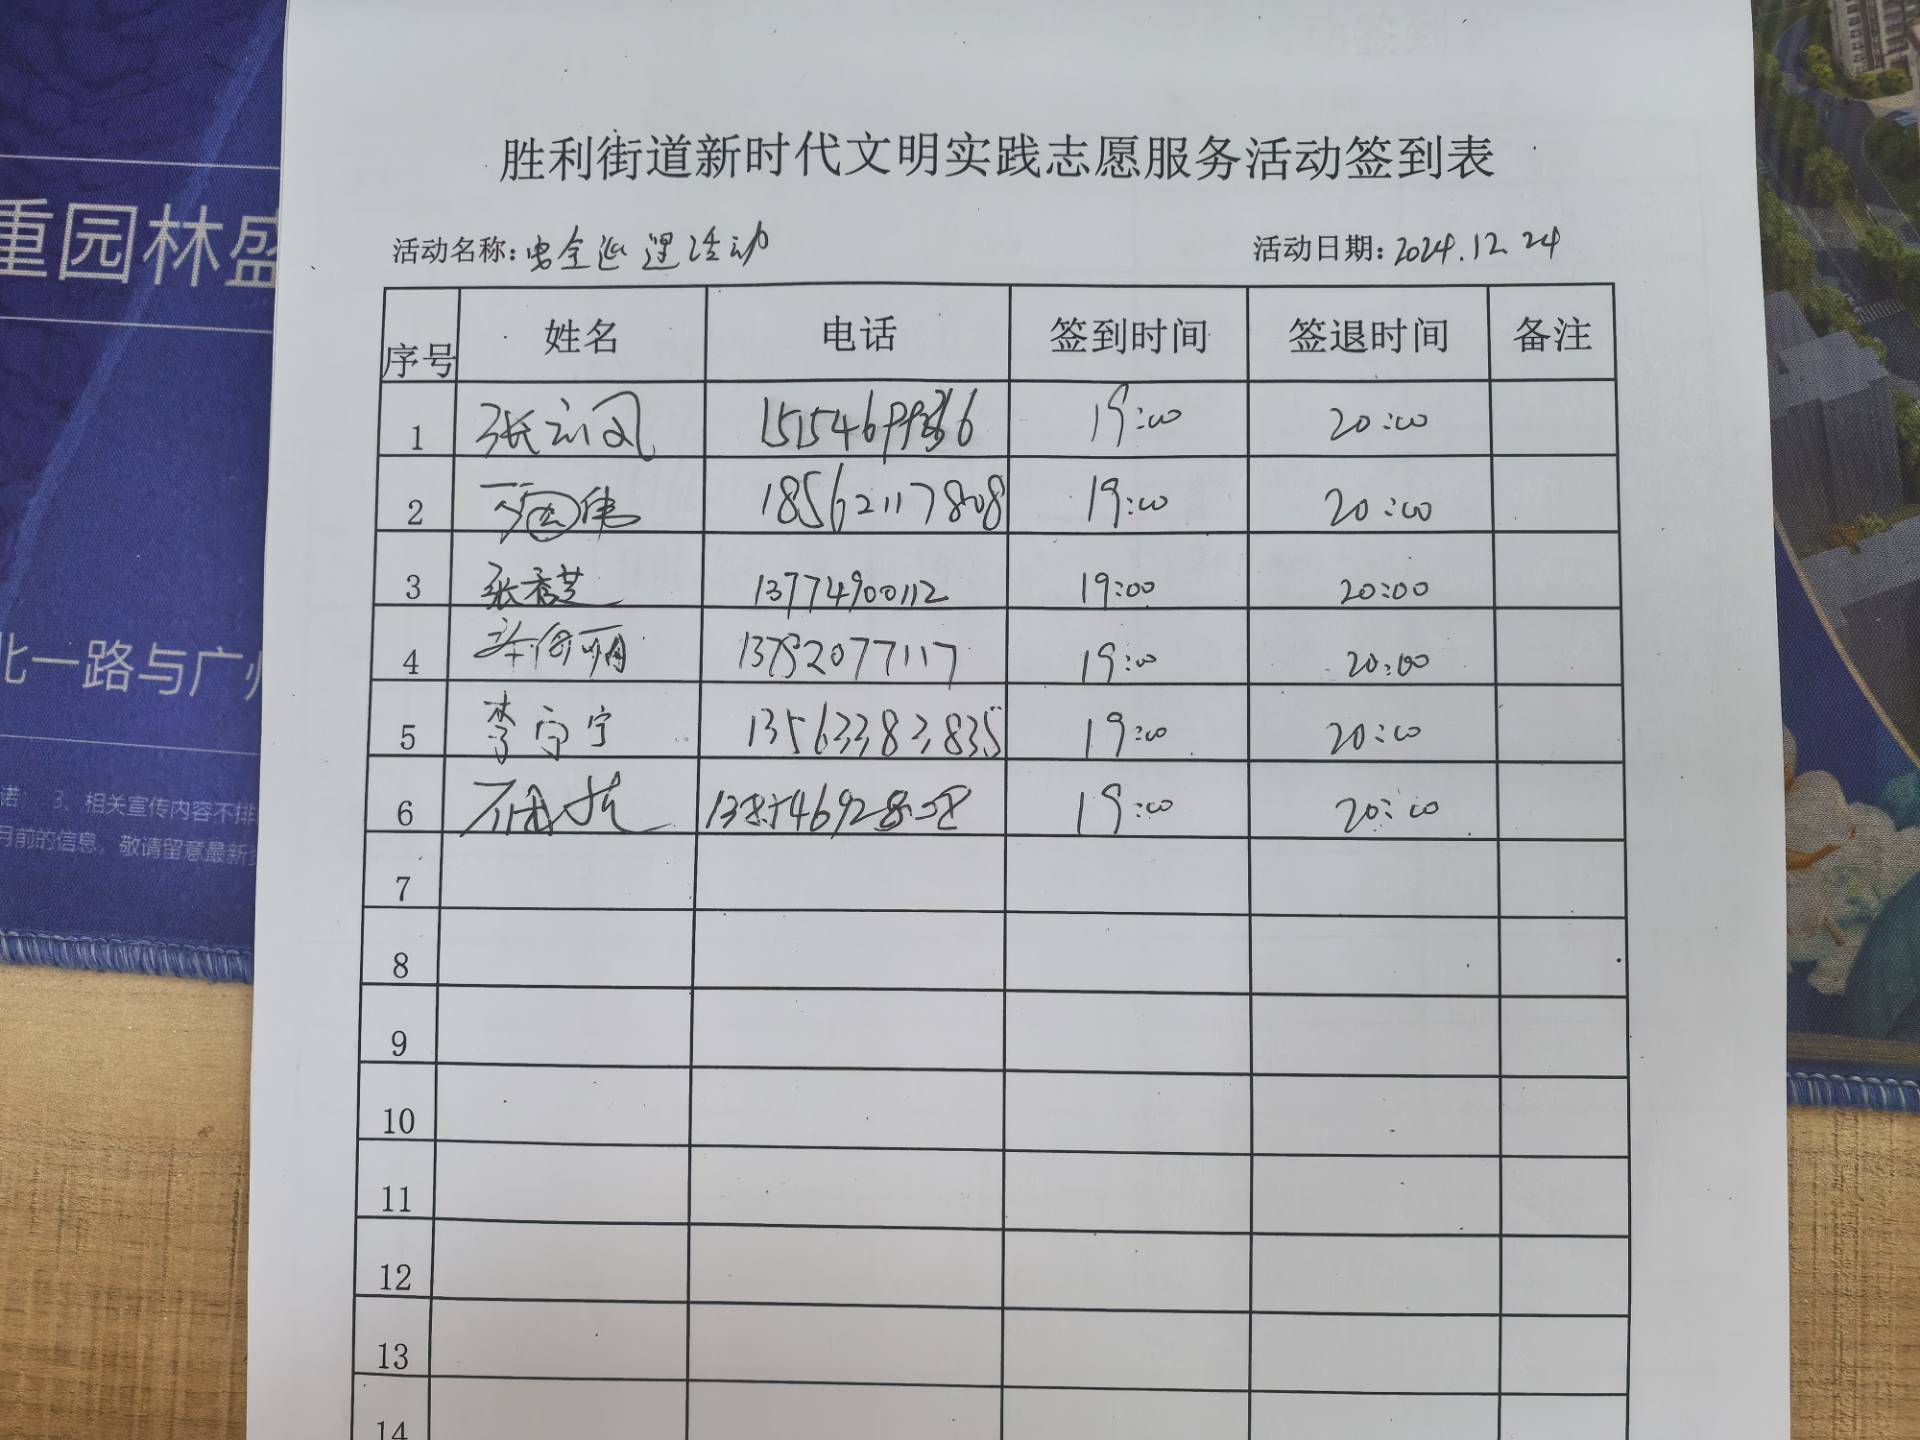 胜利街道新时代文明实践志愿服务活动签到表
活动名称：安全巡逻活动 活动日期：2024.12.24
序号 姓名 电话 签到时间 签退时间 备注
1 张云凤 19:00 20:00
2 18562117808 19:00 20:00
3 张秀芝 13774900112 19:00 20:00
4 19:00 20:00
5 李宁宁 13563382835 19:00 20:00
6 19:00 20:00
7
8
9
10
11
12
13
14
重园林盛
北一路与广州
诺 3、相关宣传内容不排
月前的信息，敬请留意最新